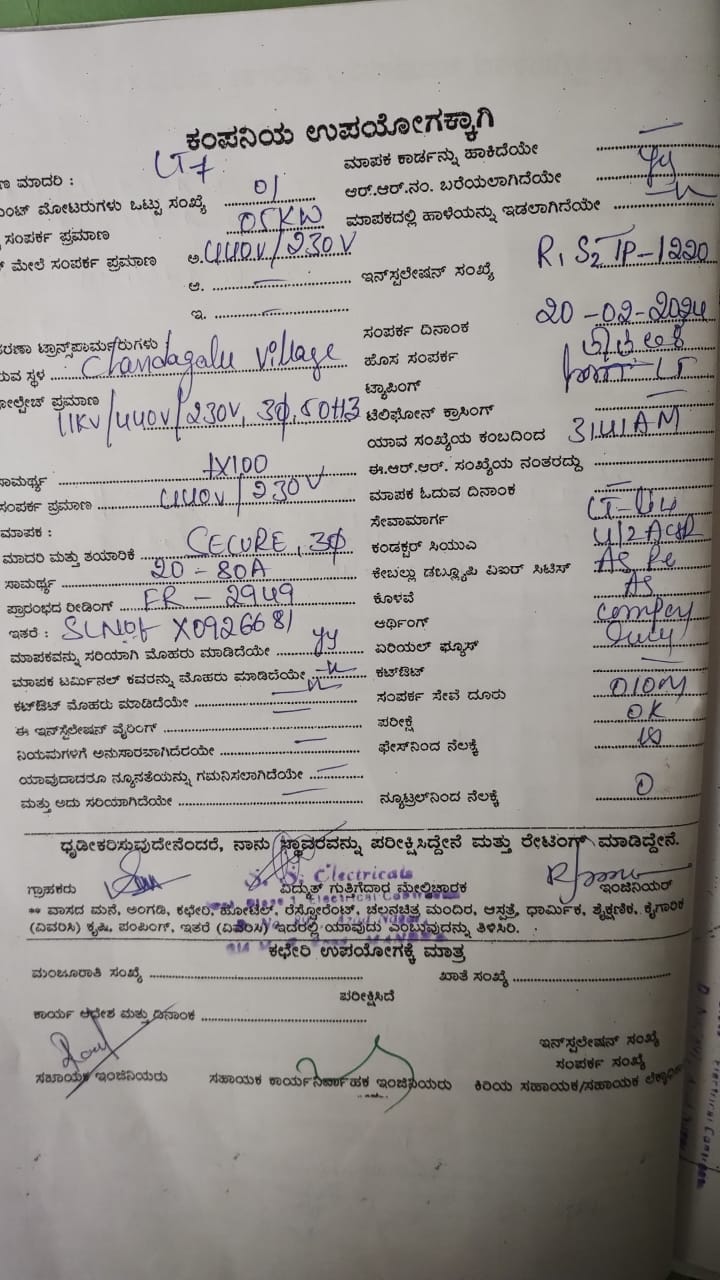 ಕಂಪನಿಯ ಉಪಯೋಗಕ್ಕಾಗಿ
ಣ ಮಾದರಿ : LT7 ಮಾಪಕ ಕಾರ್ಡನ್ನು ಹಾಕಿದೆಯೇ
ಂಟ್ ಮೋಟರುಗಳು ಒಟ್ಟು ಸಂಖ್ಯೆ 01 ಆರ್.ಆರ್.ನಂ. ಬರೆಯಲಾಗಿದೆಯೇ
ಸಂಪರ್ಕ ಪ್ರಮಾಣ 05KW ಮಾಪಕದಲ್ಲಿ ಹಾಳೆಯನ್ನು ಇಡಲಾಗಿದೆಯೇ
ಮೇಲೆ ಸಂಪರ್ಕ ಪ್ರಮಾಣ ಅ. 440V/230V
ಆ. ಇನ್‌ಸ್ಟಲೇಷನ್ ಸಂಖ್ಯೆ R1 S2 TP-1220
ಇ.
ಸಂಪರ್ಕ ದಿನಾಂಕ 20-02-2024
ರಣಾ ಟ್ರಾನ್ಸ್‌ಫಾರ್ಮರುಗಳು
ರುವ ಸ್ಥಳ Chandagalu Village ಹೊಸ ಸಂಪರ್ಕ
ಟ್ಯಾಪಿಂಗ್ LT
ೋಲ್ಟೇಜ್ ಪ್ರಮಾಣ 11KV/440V/230V, 3Φ, 50HZ ಟೆಲಿಫೋನ್ ಕ್ರಾಸಿಂಗ್
ಯಾವ ಸಂಖ್ಯೆಯ ಕಂಬದಿಂದ
ಸಾಮರ್ಥ್ಯ 1X100 ಈ.ಆರ್.ಆರ್. ಸಂಖ್ಯೆಯ ನಂತರದ್ದು
ಸಂಪರ್ಕ ಪ್ರಮಾಣ 440V/230V ಮಾಪಕ ಓದುವ ದಿನಾಂಕ
ಮಾಪಕ : ಸೇವಾಮಾರ್ಗ
ಮಾದರಿ ಮತ್ತು ತಯಾರಿಕೆ SECURE, 3Φ ಕಂಡಕ್ಟರ್ ಸಿಯುಎ
ಸಾಮರ್ಥ್ಯ 20-80A ಕೇಬಲ್ಲು ಡಬ್ಲ್ಯೂಪಿ ವಿಐರ್ ಸಿಟಿಸ್ As Per
ಪ್ರಾರಂಭದ ರೀಡಿಂಗ್ FR-2949 ಕೊಳವೆ As
ಇತರೆ : SLNO: X0926681 ಅರ್ಥಿಂಗ್
ಮಾಪಕವನ್ನು ಸರಿಯಾಗಿ ಮೊಹರು ಮಾಡಿದೆಯೇ ಏರಿಯಲ್ ಫ್ಯೂಸ್
ಮಾಪಕ ಟರ್ಮಿನಲ್ ಕವರನ್ನು ಮೊಹರು ಮಾಡಿದೆಯೇ ಕಟ್‌ಔಟ್
ಕಟ್‌ಔಟ್ ಮೊಹರು ಮಾಡಿದೆಯೇ ಸಂಪರ್ಕ ಸೇವೆ ದೂರು 010M
ಈ ಇನ್‌ಸ್ಟಲೇಷನ್ ವೈರಿಂಗ್ ಪರೀಕ್ಷೆ OK
ನಿಯಮಗಳಿಗೆ ಅನುಸಾರವಾಗಿದೆಯೇ ಫೇಸ್‌ನಿಂದ ನೆಲಕ್ಕೆ
ಯಾವುದಾದರೂ ನ್ಯೂನತೆಯನ್ನು ಗಮನಿಸಲಾಗಿದೆಯೇ
ಮತ್ತು ಅದು ಸರಿಯಾಗಿದೆಯೇ ನ್ಯೂಟ್ರಲ್‌ನಿಂದ ನೆಲಕ್ಕೆ 0
ಧೃಡೀಕರಿಸುವುದೇನೆಂದರೆ, ನಾನು ಸ್ಥಾವರವನ್ನು ಪರೀಕ್ಷಿಸಿದ್ದೇನೆ ಮತ್ತು ರೇಟಿಂಗ್ ಮಾಡಿದ್ದೇನೆ.
Electricals
ಗ್ರಾಹಕರು ವಿದ್ಯುತ್ ಗುತ್ತಿಗೆದಾರ ಮೇಲ್ವಿಚಾರಕ ಇಂಜಿನಿಯರ್
** ವಾಸದ ಮನೆ, ಅಂಗಡಿ, ಕಛೇರಿ, ಹೋಟೆಲ್, ರೆಸ್ಟೋರೆಂಟ್, ಚಲನಚಿತ್ರ ಮಂದಿರ, ಆಸ್ಪತ್ರೆ, ಧಾರ್ಮಿಕ, ಶೈಕ್ಷಣಿಕ, ಕೈಗಾರಿಕ
(ವಿವರಿಸಿ) ಕೃಷಿ, ಪಂಪಿಂಗ್, ಇತರೆ (ವಿವರಿಸಿ) ಇದರಲ್ಲಿ ಯಾವುದು ಎಂಬುವುದನ್ನು ತಿಳಿಸಿರಿ.
ಕಛೇರಿ ಉಪಯೋಗಕ್ಕೆ ಮಾತ್ರ
ಮಂಜೂರಾತಿ ಸಂಖ್ಯೆ ಖಾತೆ ಸಂಖ್ಯೆ
ಪರೀಕ್ಷಿಸಿದೆ
ಕಾರ್ಯ ಆದೇಶ ಮತ್ತು ದಿನಾಂಕ
ಇನ್‌ಸ್ಟಲೇಷನ್ ಸಂಖ್ಯೆ
ಸಂಪರ್ಕ ಸಂಖ್ಯೆ
ಸಹಾಯಕ ಇಂಜಿನಿಯರು ಸಹಾಯಕ ಕಾರ್ಯನಿರ್ವಾಹಕ ಇಂಜಿನಿಯರು ಕಿರಿಯ ಸಹಾಯಕ/ಸಹಾಯಕ